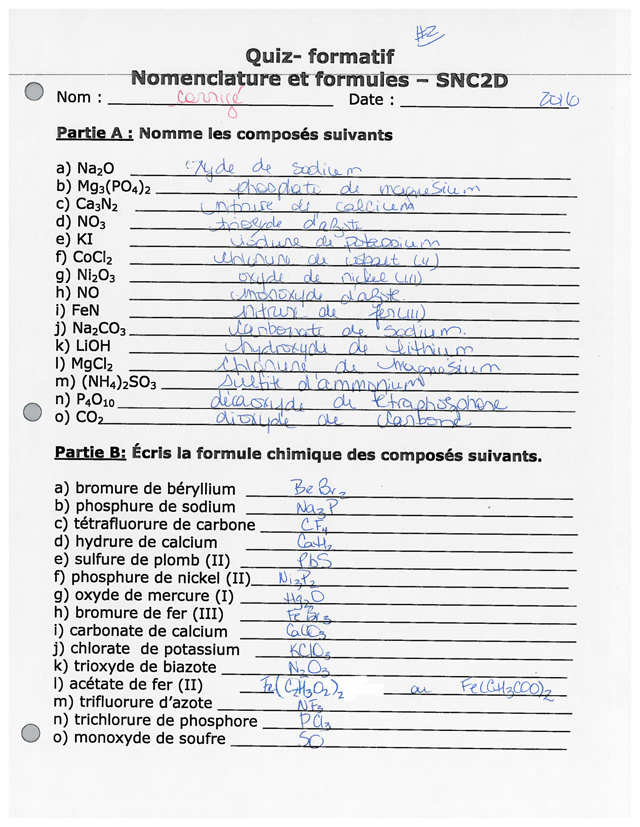 #2
Quiz- formatif
Nomenclature et formules – SNC2D
Nom : corrigé Date : 2016
Partie A : Nomme les composés suivants
a) Na₂O oxyde de sodium
b) Mg₃(PO₄)₂ phosphate de magnésium
c) Ca₃N₂ nitrure de calcium
d) NO₃ trioxyde d'azote
e) KI iodure de potassium
f) CoCl₂ chlorure de cobalt (II)
g) Ni₂O₃ oxyde de nickel (III)
h) NO monoxyde d'azote.
i) FeN nitrure de fer (III)
j) Na₂CO₃ carbonate de sodium.
k) LiOH hydroxyde de lithium
l) MgCl₂ chlorure de magnésium
m) (NH₄)₂SO₃ sulfite d'ammonium
n) P₄O₁₀ décaoxyde de tétraphosphore
o) CO₂ dioxyde de carbone
Partie B: Écris la formule chimique des composés suivants.
a) bromure de béryllium BeBr₂
b) phosphure de sodium Na₃P
c) tétrafluorure de carbone CF₄
d) hydrure de calcium CaH₂
e) sulfure de plomb (II) PbS
f) phosphure de nickel (II) Ni₃P₂
g) oxyde de mercure (I) Hg₂O
h) bromure de fer (III) FeBr₃
i) carbonate de calcium CaCO₃
j) chlorate de potassium KClO₃
k) trioxyde de biazote N₂O₃
l) acétate de fer (II) Fe(C₂H₃O₂)₂ ou Fe(CH₃COO)₂
m) trifluorure d'azote NF₃
n) trichlorure de phosphore PCl₃
o) monoxyde de soufre SO